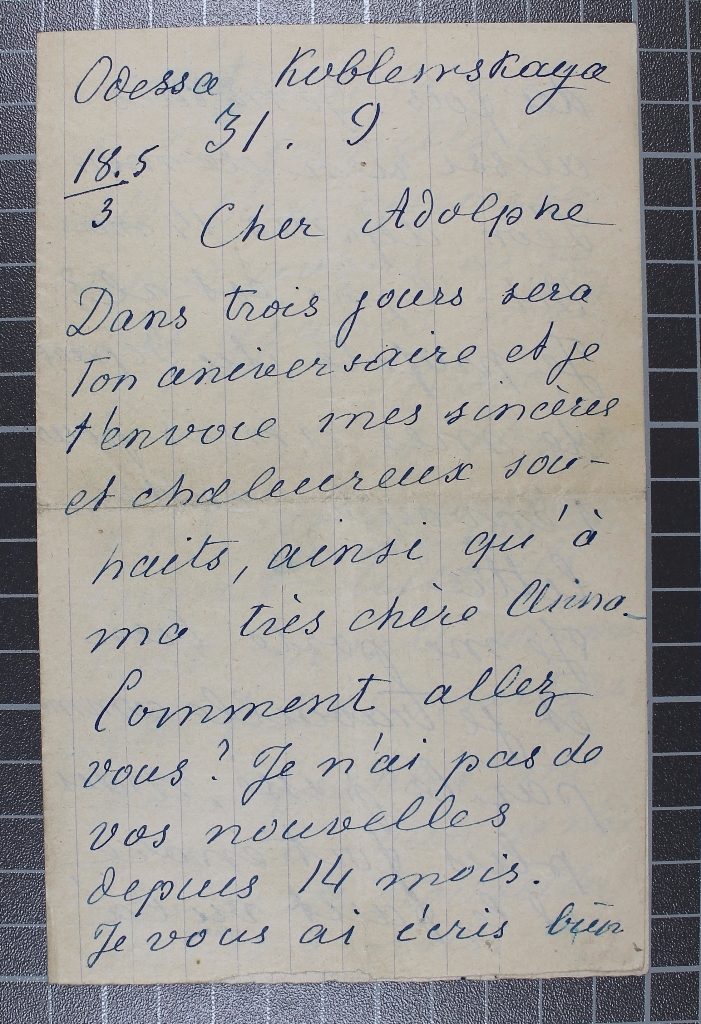 Odessa Koblewskaya
31. 9
18.5
3
Cher Adolphe
Dans trois jours sera
Ton aniversaire et je
t'envoie mes sincères
et chaleureux sou-
haits, ainsi qu'à
ma très chère Anna_
Comment allez
vous? Je n'ai pas de
vos nouvelles
depuis 14 mois.
Je vous ai écris bien